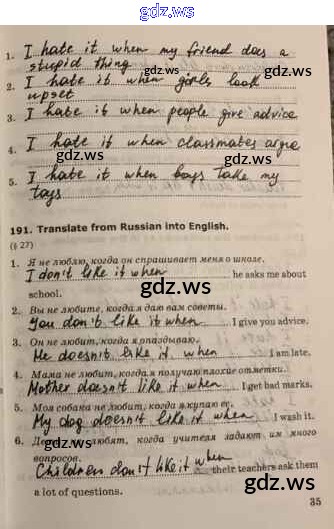 gdz.ws
1. I hate it when my friend does a
stupid thing gdz.ws
2. I hate it when girls look
upset gdz.ws
3. I hate it when people give advice
gdz.ws
4. I hate it when classmates argue
gdz.ws
5. I hate it when boys take my
toys gdz.ws
191. Translate from Russian into English.
(§ 27) gdz.ws
1. Я не люблю, когда он спрашивает меня о школе.
I don't like it when he asks me about
school. gdz.ws
2. Вы не любите, когда я даю вам советы.
You don't like it when I give you advice.
3. Он не любит, когда я опаздываю.
He doesn't like it when I am late.
4. Мама не любит, когда я получаю плохие отметки.
Mother doesn't like it when I get bad marks.
5. Моя собака не любит, когда я купаю ее.
My dog doesn't like it when I wash it.
6. любят, когда учителя задают им много
вопросов. gdz.ws
Children don't like it when their teachers ask them
a lot of questions. gdz.ws
35